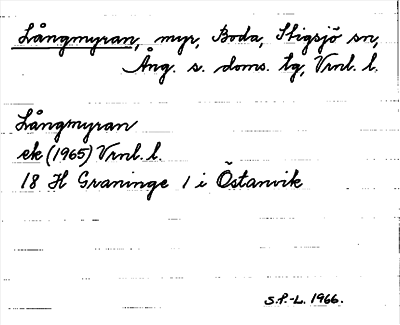 Långmyran, myr, Boda, Stigsjö sn,
Ång. s. doms. tg, Vrnl. l.
Långmyran
ek (1965) Vrnl. l.
18 H Graninge 1 i Östanvik
S.P.-L. 1966.